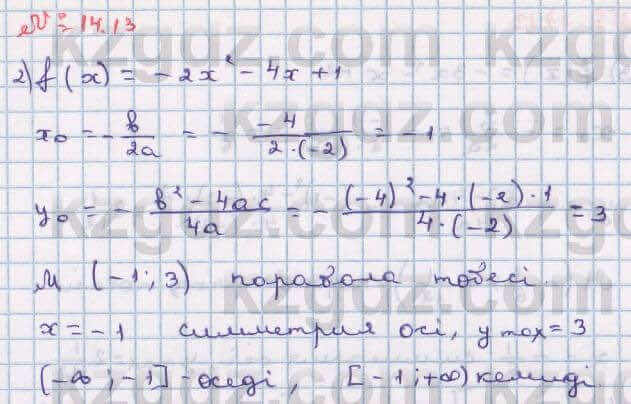 № 14.13
2) f(x) = -2x² - 4x + 1
x₀ = -b/2a = - -4/2·(-2) = -1
y₀ = - b² - 4ac/4a = - (-4)² - 4·(-2)·1/4·(-2) = 3
M (-1; 3) поравола тобесі.
x = -1 симметрия осі, y max = 3
(-∞; -1] - оседі, [-1; +∞) кемиді.
kzgdz.com